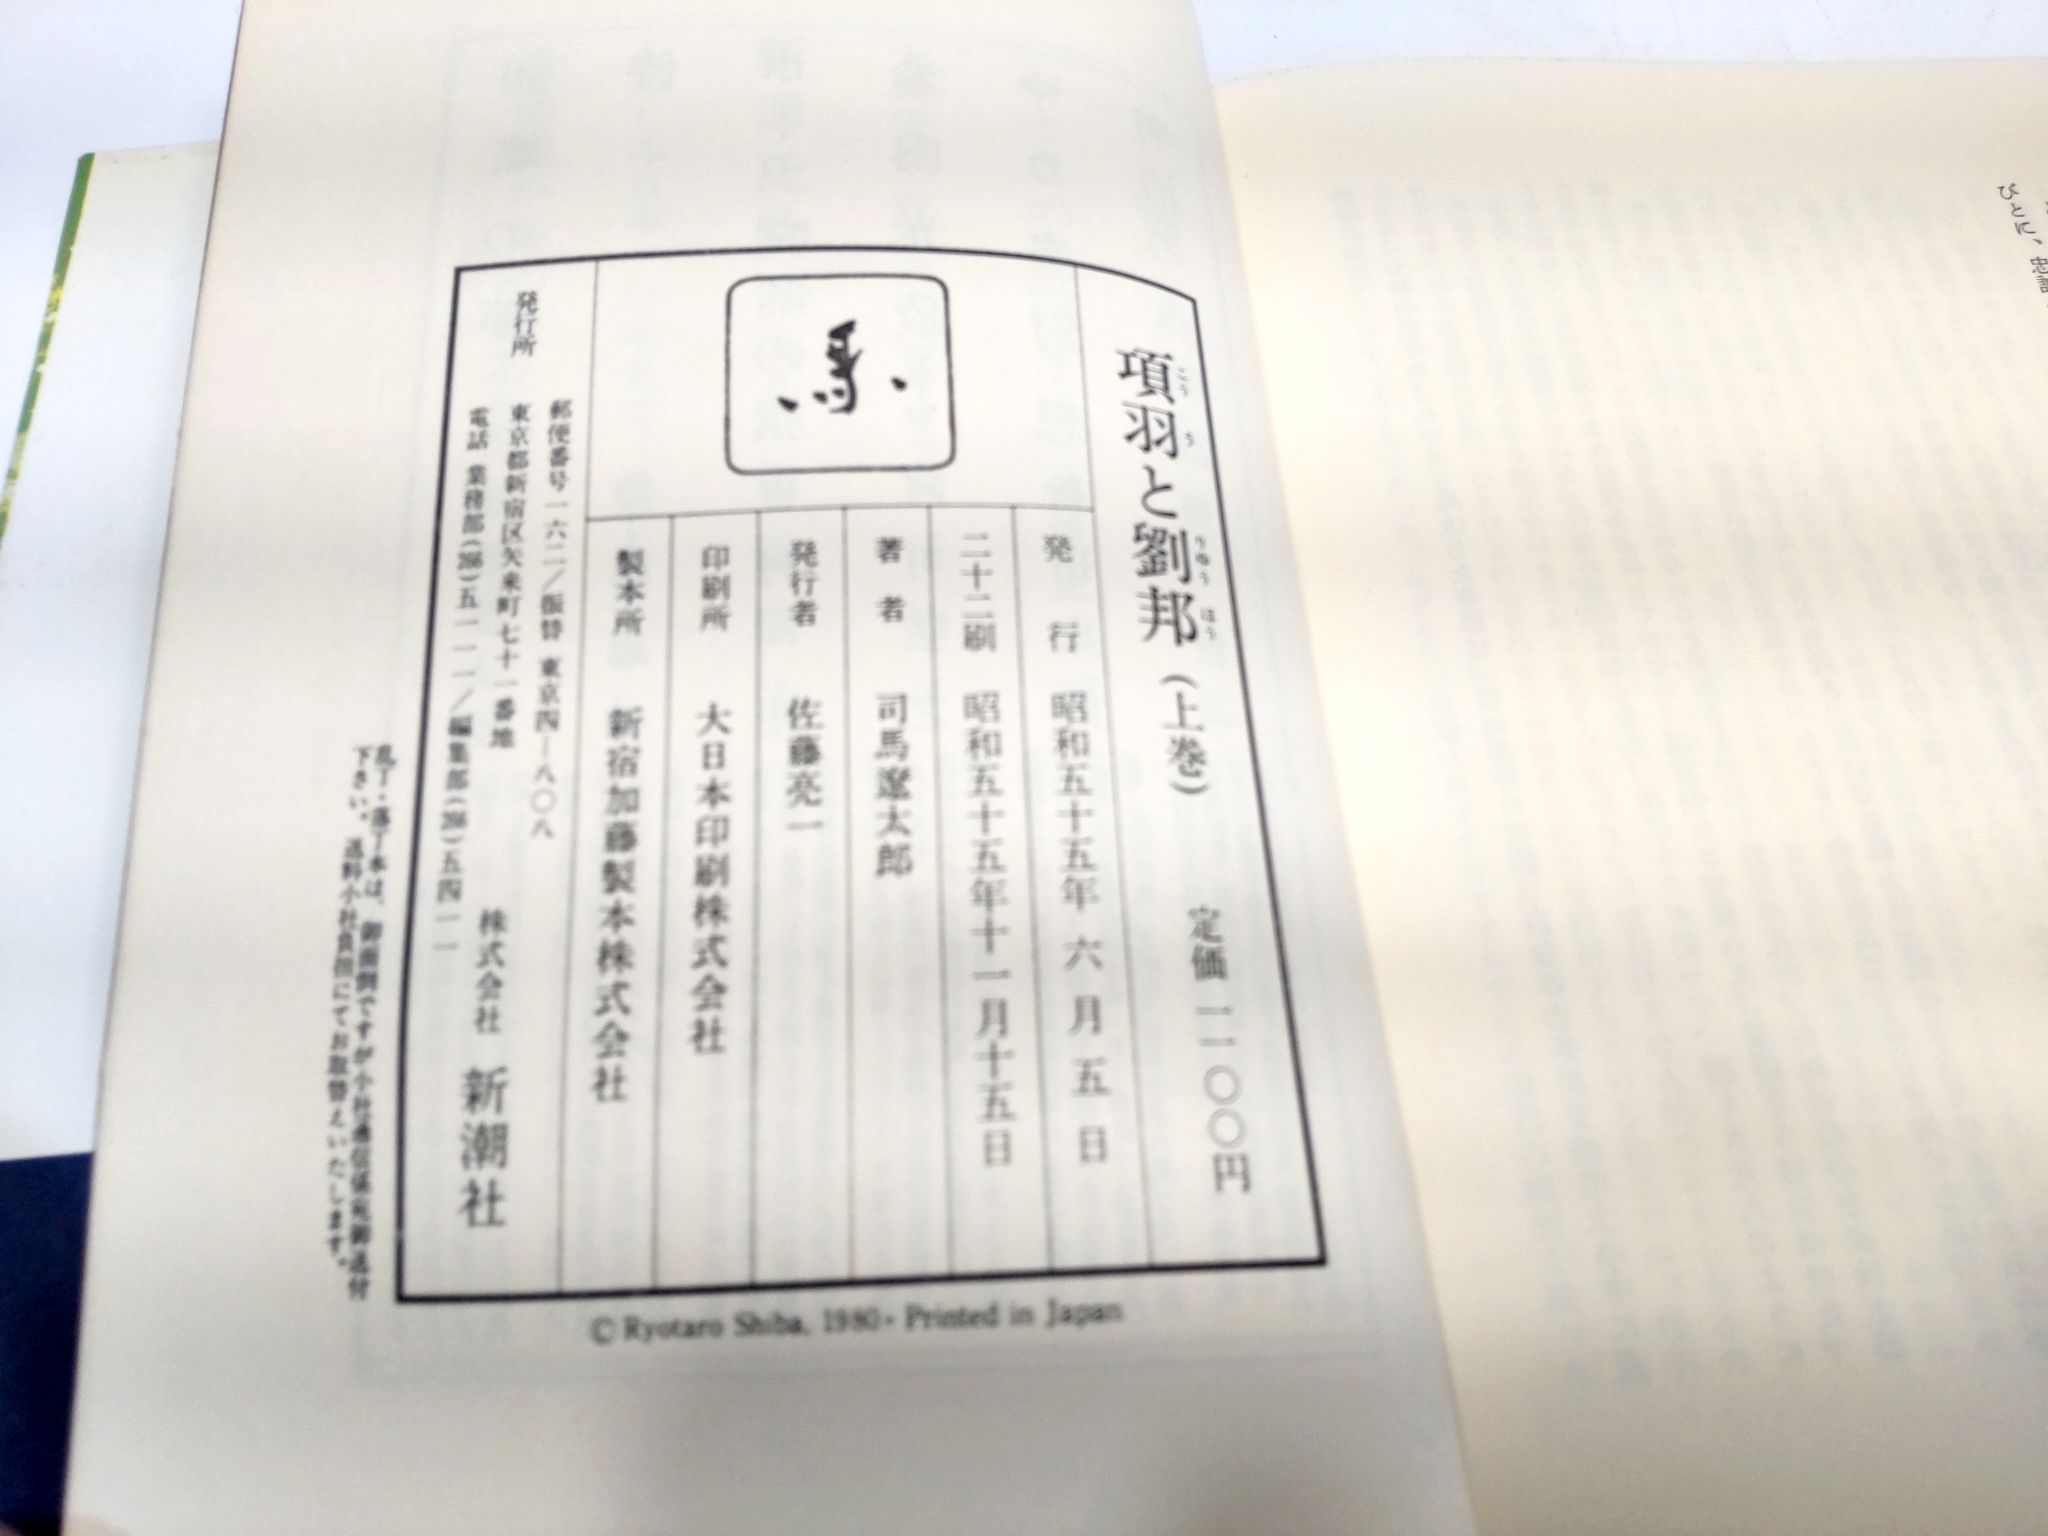 項羽と劉邦（上巻）　定価一一〇〇円
こう　う　りゅう　ほう
発行　昭和五十五年六月五日
二十二刷　昭和五十五年十一月十五日
著者　司馬遼太郎
発行者　佐藤亮一
印刷所　大日本印刷株式会社
製本所　新宿加藤製本株式会社
発行所　株式会社　新潮社
郵便番号一六二／振替　東京四―八〇八
東京都新宿区矢来町七十一番地
電話　業務部(266)五一一一／編集部(266)五四一一
乱丁・落丁本は、御面倒ですが小社通信係宛御送付
下さい。送料小社負担にてお取替えいたします。
© Ryotaro Shiba, 1980・Printed in Japan
びとに、